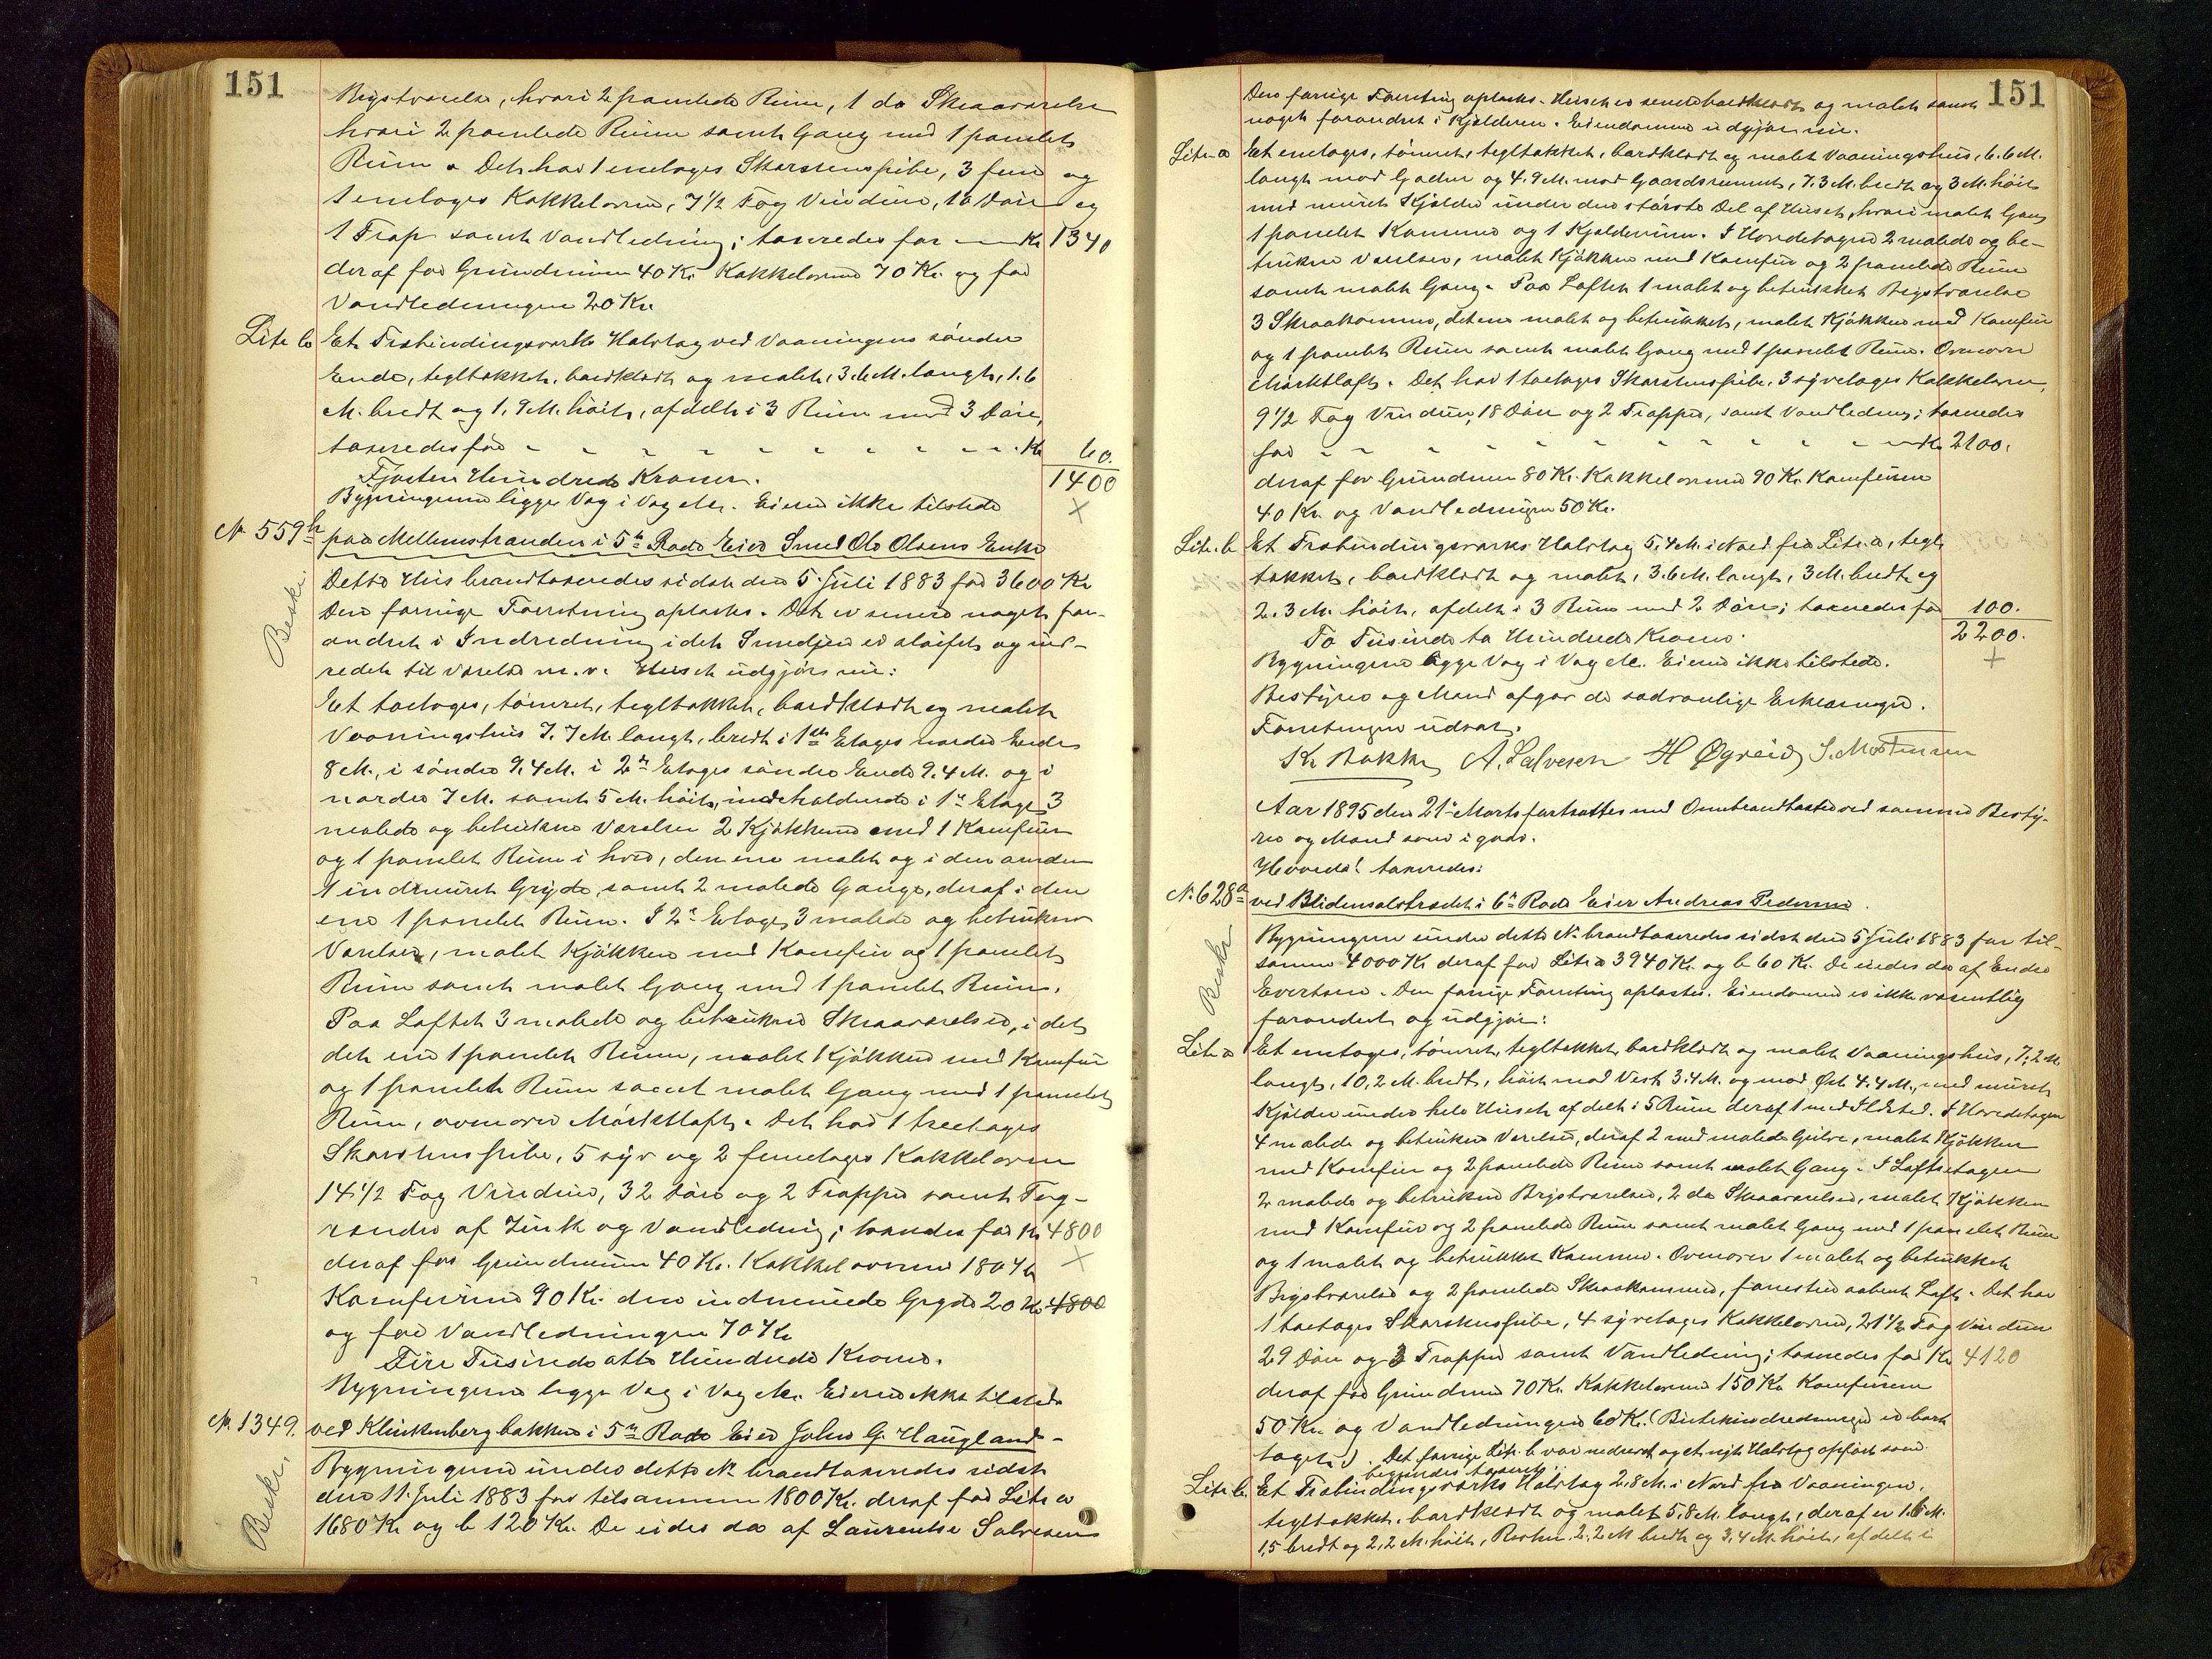 151
Bryströrelse, hvori 2 panelede Rum, 1 do Skraaværelse
hvori 2 panelede Rum samt Gang med 1 panelet
Rum. Det har 1 enetages Skorstenspibe, 3 fem og
1 enetages Kakkelovne, 7 1/2 Fag Vinduer, 10 Døre og
1 Trap samt Vandledning; taxeredes for Kr 1340
deraf for Grundmuren 40 Kr. Kakkelovnene 70 Kr. og for
Vandledningen 20 Kr.
Litr. b Et Trebindingsværks Halvtag ved Vaaningens søndre
Ende, tegltækket, bordklædt og malet, 3.6 M. langt, 1.6
M. bredt og 1.9 M. høit, afdelt i 3 Rum med 3 Døre,
taxeredes for - - - - - - - - - Kr 60.
Fjorten Hundrede Kroner. 1400
Bygningerne ligger Væg i Væg etc. Eieren ikke tilstede
N. 559 b paa Mellemstranden i 5te Rode Eier Smed Ole Olsens Enke
Beskr.
Dette Hus brandtaxeredes sidst den 5 Juli 1883 for 3600 Kr
Den forrige Forretning oplæstes. Det er senere noget for-
andret i Indredning idet Smedjen er sløifet og ind-
redet til Værelse m. v. Huset udgjør nu:
Et toetages, tømret, tegltækket, bordklædt og malet
Vaaningshus 7.7 M. langt, bredt i 1ste Etages nordre Ende
8 M., i søndre 9.4 M. i 2n Etages søndre Ende 9.4 M. og i
nordre 7 M. samt 5 M. høit, indeholdende i 1ste Etage 3
malede og betrukne Værelser 2 Kjøkkener med 1 Komfur
og 1 panelet Rum i hver, den ene malet og i den anden
1 indmuret Gryde, samt 2 malede Gange, deraf i den
ene 1 panelet Rum. I 2n Etage 3 malede og betrukne
Værelser, malet Kjøkken med Komfur og 1 panelet
Rum samt malet Gang med 1 panelet Rum.
Paa Loftet 3 malede og betrukne Skraaværelser, i det
det ene 1 panelet Rum, malet Kjøkken med Komfur
og 1 panelet Rum samt malet Gang med 1 panelet
Rum, ovenover Mørktloft. Det har 1 treetages
Skorstenspibe, 5 syv og 2 femetages Kakkelovne
14 1/2 Fag Vinduer, 32 Døre og 2 Trapper samt Tag-
render af Zink og Vandledning; taxeredes for Kr 4800
deraf for Grundmuren 40 Kr. Kakkelovnene 180 Kr
Komfurene 90 Kr. den indmurede Gryde 20 Kr 4800
og for Vandledningen 70 Kr
Fire Tusinde otte Hundrede Kroner.
Bygningerne ligger Væg i Væg etc. Eieren ikke tilstede
N. 1349. ved Klinkenbergbakken i 5te Rode Eier John G. Haugland -
Beskr.
Bygningerne under dette N. brandtaxeredes sidst
den 11 Juli 1883 for tilsammen 1800 Kr. deraf for Litr a
1680 Kr og b 120 Kr. De eides da af Laurentse Salvesen
151
Den forrige Forretning oplæstes. Huset er senere bordklædt og malet samt
noget forandret i Kjælderen. Eiendommen udgjør nu.
Litr. a Et enetages, tømret, tegltækket, bordklædt og malet Vaaningshus, 6.6 M.
langt mod Gaden og 4.9 M. mod Gaardsrummet, 7.3 M. bredt og 3 M. høit
med muret Kjælder under den største Del af Huset, hvori malet Gang
1 panelet Kammer og 1 Kjælderrum. I Hovedetagen 2 malede og be-
trukne Værelser, malet Kjøkken med Komfur og 2 panelede Rum
samt malet Gang. Paa Loftet 1 malet og betrukket Brystværelse
3 Skraakammer, det ene malet og betrukket, malet Kjøkken med Komfur
og 1 panelet Rum samt malet Gang med 1 panelet Rum. Ovenover
Mørktloft. Det har 1 toetages Skorstenspibe, 3 syvetages Kakkelovne,
9 1/2 Fag Vinduer, 18 Døre og 2 Trapper, samt Vandledning; taxeredes
for - - - - - - - - - Kr 2100.
deraf for Grundmuren 80 Kr. Kakkelovnene 90 Kr. Komfurene
40 Kr. og Vandledningen 50 Kr.
Litr. b Et Trebindingsværks Halvtag 5.4 M. i Nord fra Litr. a, tegl-
tækket, bordklædt og malet, 3.6 M. langt, 3 M. bredt og
2.3 M. høit, afdelt i 3 Rum med 2 Døre; taxeredes for 100.
To Tusinde to Hundrede Kroner. 2200.
Bygningerne ligger Væg i Væg etc. Eieren ikke tilstede.
Bestyrer og Mænd afgav de sædvanlige Erklæringer.
Forretningen udsat.
K. Bakke A. Salvesen H Øgreid S. Mortensen
Aar 1895 den 21de Marts fortsattes med Ombrandtaxter ved samme Besty-
rer og Mænd som igaar.
Hvorda! taxeredes:
N. 628 a ved Blidensolstrædet i 6te Rode Eier Andreas Pedersen.
Beskr
Bygningerne under dette N. brandtaxeredes sidst den 5 Juli 1883 for til-
sammen 4000 Kr deraf for Litr a 3940 Kr. og b 60 Kr. De eides da af Endre
Evertsen. Den forrige Forretning oplæstes. Eiendommen er ikke væsentlig
forandret og udgjør:
Litr a Et enetages, tømret, tegltækket, bordklædt og malet Vaaningshus, 7.2 M.
langt, 10.2 M. bredt, høit mod Vest 3.4 M. og mod Øst 4.4 M., med muret
Kjælder under hele Huset afdelt i 5 Rum deraf 1 med Ildsted. I Hovedetagen
4 malede og betrukne Værelser, deraf 2 med malede Gulve, malet Kjøkken
med Komfur og 2 panelede Rum samt malet Gang. I Loftsetagen
2 malede og betrukne Brystværelser, 2 do Skraaværelser, malet Kjøkken
med Komfur og 2 panelede Rum samt malet Gang med 1 panelet Rum
og 1 malet og betrukket Kammer. Ovenover 1 malet og betrukket
Brystværelse og 2 panelede Skraakammer, forresten aabent Loft. Det har
1 toetages Skorstenspibe, 4 syvetages Kakkelovne, 21 1/2 Fag Vinduer
29 Døre og 3 Trapper samt Vandledning; taxeredes for Kr 4120
deraf for Grundmuren 70 Kr. Kakkelovnene 150 Kr Komfurene
50 Kr. og Vandledningen 60 Kr. er bort
taget). Det forrige Litr. b var nedrevet og et nyt Halvtag opført som
begjærdes taxeret:
Litr. b. Et Trebindingsværks Halvtag 2.8 M. i Nord fra Vaaningen,
tegltækket, bordklædt og malet 5.8 M. langt, deraf er 1.6 M.
1.5 bredt og 2.2 M. høit, Resten 2.2 M bredt og 3.4 M. høit, afdelt i